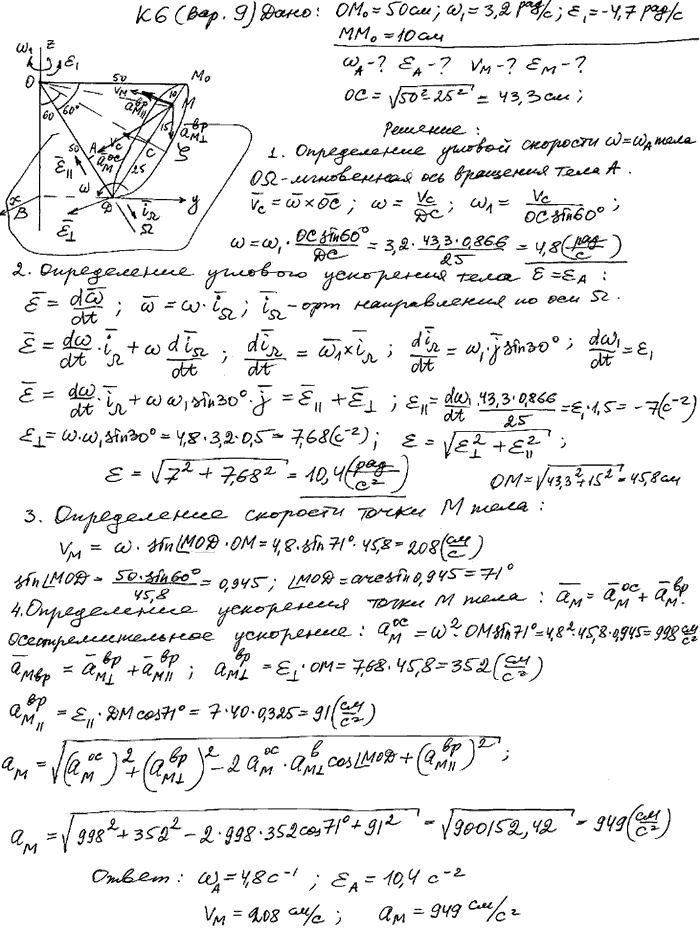 К6 (Вар. 9) Дано: OM₀ = 50 см; ω₁ = 3,2 рад/с; ε₁ = -4,7 рад/с
MM₀ = 10 см
ω_A - ? ε_A - ? V_M - ? ε_M - ?
OC = √(50² - 25²) = 43,3 см;
ω₁ z ε₁
O 50 M₀
V_M 10 M
a^вр_M∥
60 60° 15 a^вр_M⊥
50 A V_C C ζ
ε̄_∥ a^ос_M
ω 25
x B D y
ε̄_⊥ ī_Ω
Ω
Решение:
1. Определение угловой скорости ω = ω_A тела
OΩ - мгновенная ось вращения тела A.
V̄_C = ω̄ × OC̄; ω = V_C/DC; ω₁ = V_C/(OC sin60°);
ω = ω₁ · OC sin60°/DC = 3,2 · 43,3·0,866/25 = 4,8 (рад/с)
2. Определение углового ускорения тела ε̄ = ε_A:
ε̄ = dω̄/dt; ω̄ = ω · ī_Ω; ī_Ω - орт направления по оси Ω.
ε̄ = dω/dt · ī_Ω + ω dī_Ω/dt; dī_Ω/dt = ω̄₁ × ī_Ω; dī_Ω/dt = ω₁ · j̄ sin30°; dω₁/dt = ε₁
ε̄ = dω/dt · ī_Ω + ω ω₁ sin30° · j̄ = ε̄_∥ + ε̄_⊥; ε_∥ = dω₁/dt · 43,3·0,866/25 = ε₁ · 1,5 = -7 (с⁻²)
ε_⊥ = ω · ω₁ sin30° = 4,8 · 3,2 · 0,5 = 7,68 (с⁻²); ε = √(ε²_⊥ + ε²_∥);
ε = √(7² + 7,68²) = 10,4 (рад/с²) OM = √(43,3² + 15²) = 45,8 см
3. Определение скорости точки M тела:
V_M = ω · sin∠MOD · OM = 4,8 · sin71° · 45,8 = 208 (см/с)
sin∠MOD = 50·sin60°/45,8 = 0,945; ∠MOD = arcsin 0,945 = 71°
4. Определение ускорения точки M тела: ā_M = ā^ос_M + ā^вр_M.
Осестремительное ускорение: a^ос_M = ω² · OM sin71° = 4,8² · 45,8 · 0,945 = 998 см/с²
ā_Mвр = ā^вр_M⊥ + ā^вр_M∥; a^вр_M⊥ = ε_⊥ · OM = 7,68 · 45,8 = 352 (см/с²)
a^вр_M∥ = ε_∥ · DM cos71° = 7 · 40 · 0,325 = 91 (см/с²)
a_M = √((a^ос_M)² + (a^вр_M⊥)² - 2 a^ос_M · a^в_M⊥ cos∠MOD + (a^вр_M∥)²);
a_M = √(998² + 352² - 2 · 998 · 352 cos71° + 91²) = √900152,42 = 949 (см/с²)
Ответ: ω_A = 4,8 с⁻¹; ε_A = 10,4 с⁻²
V_M = 208 см/с; a_M = 949 см/с²